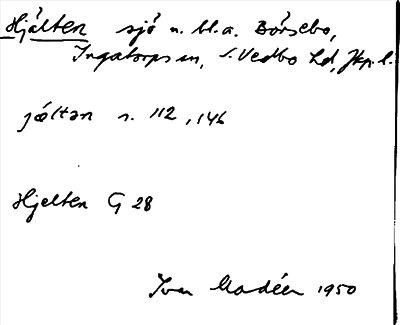 Hjälten sjö n. bl.a. Börsebo,
Ingatorps sn, S. Vedbo hd, Jkp. l.
jæltən s. 112, 146
Hjelten G 28
Ivar Modéer 1950